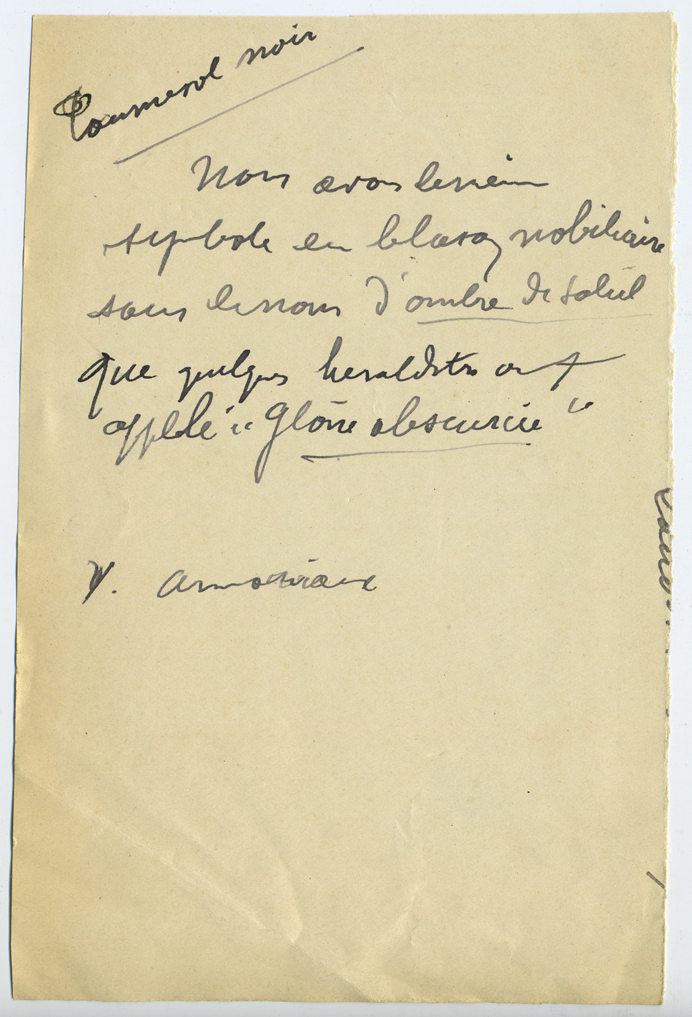 Tournesol noir
Nous avons le même
symbole en blason nobiliaire
sous le nom d'ombre de Soleil
que quelques heraldistes ont
appelé "Gloire obscurcie"
V. armoriaux